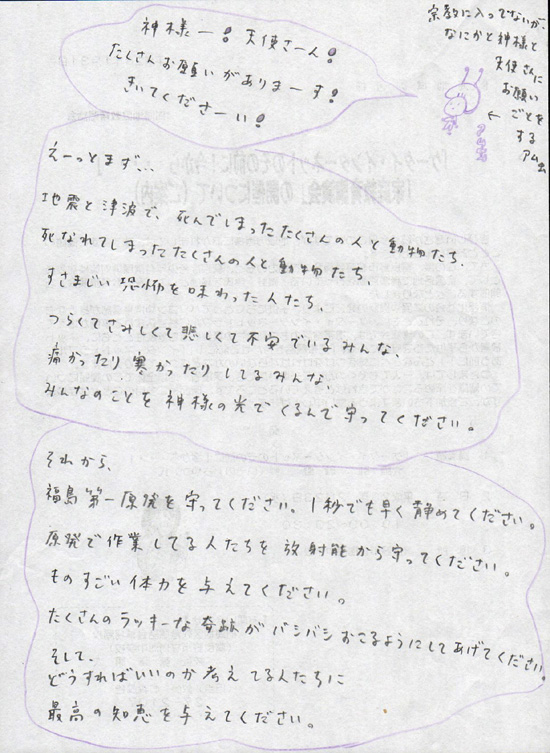 神様ー!天使さーん!
たくさんお願いがありまーす!
きいてくださーい!
宗教に入ってないが、
なにかと神様と
天使さんに
お願い
ごとを
する
アム虫
←
アム虫
えーっとまず、、
地震と津波で、死んでしまったたくさんの人と動物たち、
死なれてしまったたくさんの人と動物たち、
すさまじい恐怖を味わった人たち、
つらくてさみしくて悲しくて不安でいるみんな、
痛かったり寒かったりしてるみんな、
みんなのことを神様の光でくるんで守ってください。
それから、
福島第一原発を守ってください。1秒でも早く静めてください。
原発で作業してる人たちを放射能から守ってください。
ものすごい体力を与えてください。
たくさんのラッキーな奇跡がバシバシおこるようにしてあげてください。
そして、
どうすればいいのか考えてる人たちに
最高の知恵を与えてください。